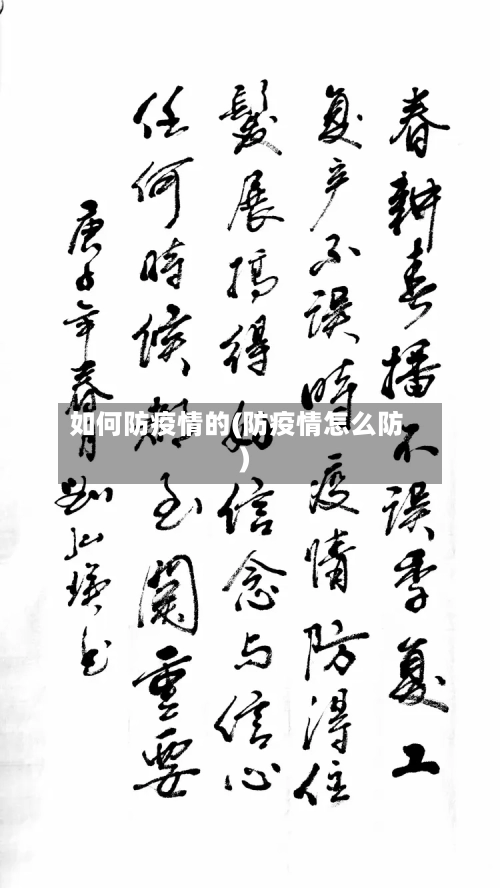 春耕春播不误季复工
复产不误時疫情防得住
髮展搞得好信念与信心
任何時候都至關重要
庚子年春月
如何防疫情的(防疫情怎么防
)